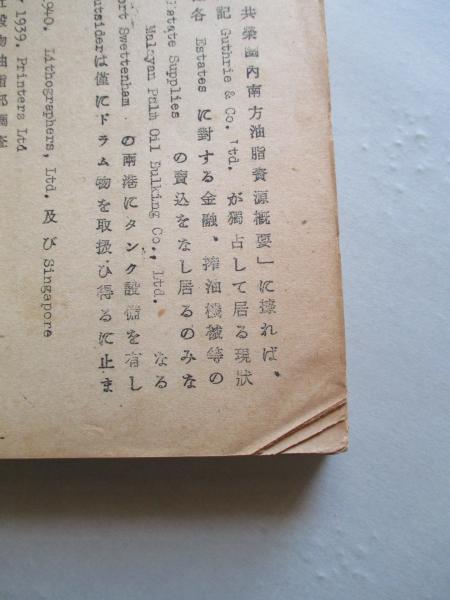 共榮圈內南方油脂資源概要」に據れば、
記 Guthrie & Co. Ltd. が獨占して居る現狀
各 Estates に對する金融、搾油機械等の
Estate Supplies の賣込をなし居るのみな
Malayan Palm Oil Bulking Co., Ltd. なる
Port Swettenham の兩港にタンク設備を有し
outsider は僅にドラム物を取扱ひ得るに止ま
1940. Lithographers, Ltd. 及び Singapore
1939. Printers Ltd